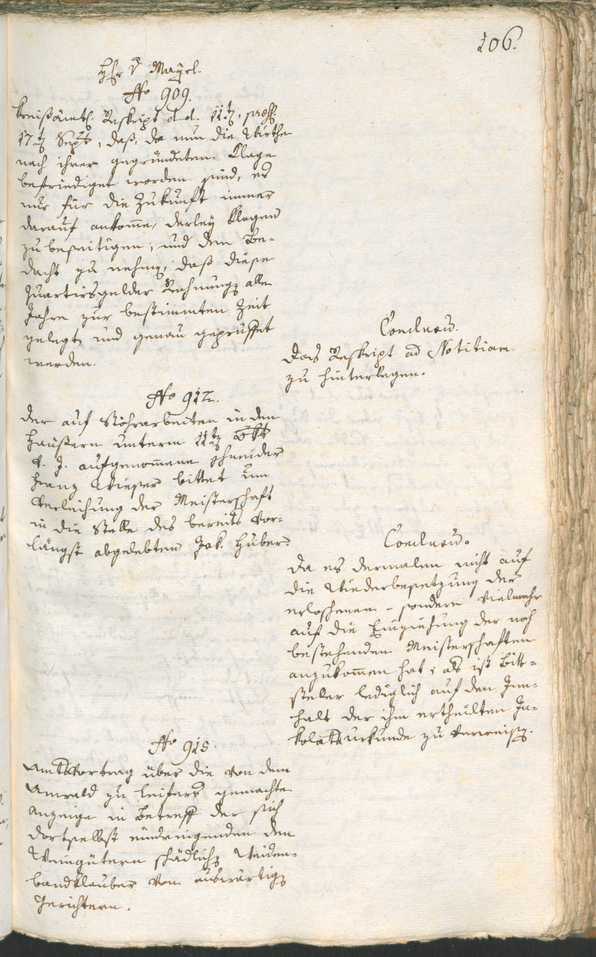 106.
Hr. v Mayrl.
No 909.
Kreisämtl. Reskript d. d. 11t, pres.
17t Sept, daß, da nun die Wirthe
nach ihrer gegründeten Klage
befriediget worden sind, es
nur für die Zukunft immer
darauf ankomme, derley Klagen
zu beseitigen, und den Be-
dacht zu nehmen, daß diese
Quartiersgelder Rechnung alle
Jahre zur bestimmten Zeit
gelegt, und genau geprüffet
werden.
Conclusu.
Das Reskript ad Notitiam
zu hinterlegen.
No 912.
Der auf Stöhrarbeiten in den
Häusern unterm 11t
v. J. aufgenommene Schneider
Franz Wieser bittet um
Verleihung der Meisterschaft
in die Stelle des bereits vor-
längst abgelebten Jak. Huber.
Conclusu.
Da es dermalen nicht auf
die Wiederbesetzung der
erloschenen – sondern vielmehr
auf die Einziehung der noch
bestehenden Meisterschaften
anzukommen hat; als ist Bitt-
steller lediglich auf den Inn-
halt der ihm ertheilten In-
kolatsurkunde zu verweisen.
No 915.
Amtsvortrag über die von dem
Anwald zu Leifers gemachte
Anzeige in Betreff der sich
dortselbst eindringenden den
Weingütern schädlichen Weiden-
bandklauber von auswärtigen
Gerichtern.